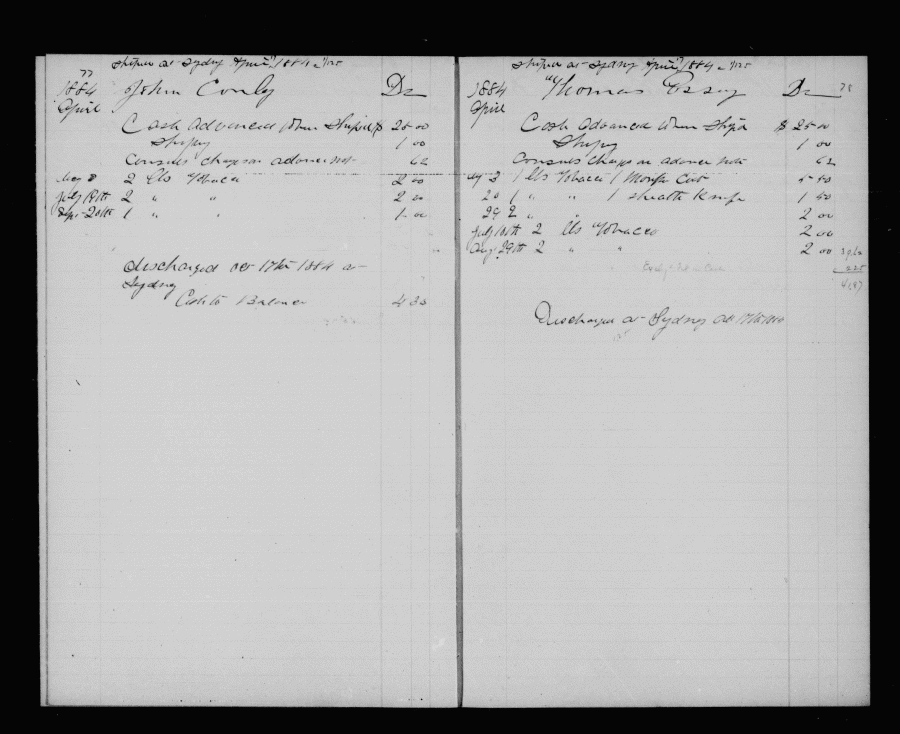 77
Shiped at Sydney April 1884 a 1/125
1884 John Conly Dr
April
Cash Advanced When Shiped $ 25 00
Shiping 1 00
Consuls charge on advance note 62
May 8 2 lbs Tobacco 2 00
July 19th 2 " " 2 00
Sept 20th 1 " " 1 00
discharged Oct 17th 1884 at
Sydney
Cash to Balance
78
Shiped at Sydney April 1884 a 1/125
1884 Thomas Dr
April
Cash Advanced When Shipd $ 25 00
Shiping 1 00
Consuls Charge on advance note 62
1 lbs Tobacco 1 Monkey Coat 5 50
20 1 " " 1 Sheath Knife 1 50
29 2 " " 2 00
July 2 lbs Tobacco 2 00
Aug 29th 2 " " 2 00
39.62
2.25
41.87
Discharged at Sydney Oct 17th 1884